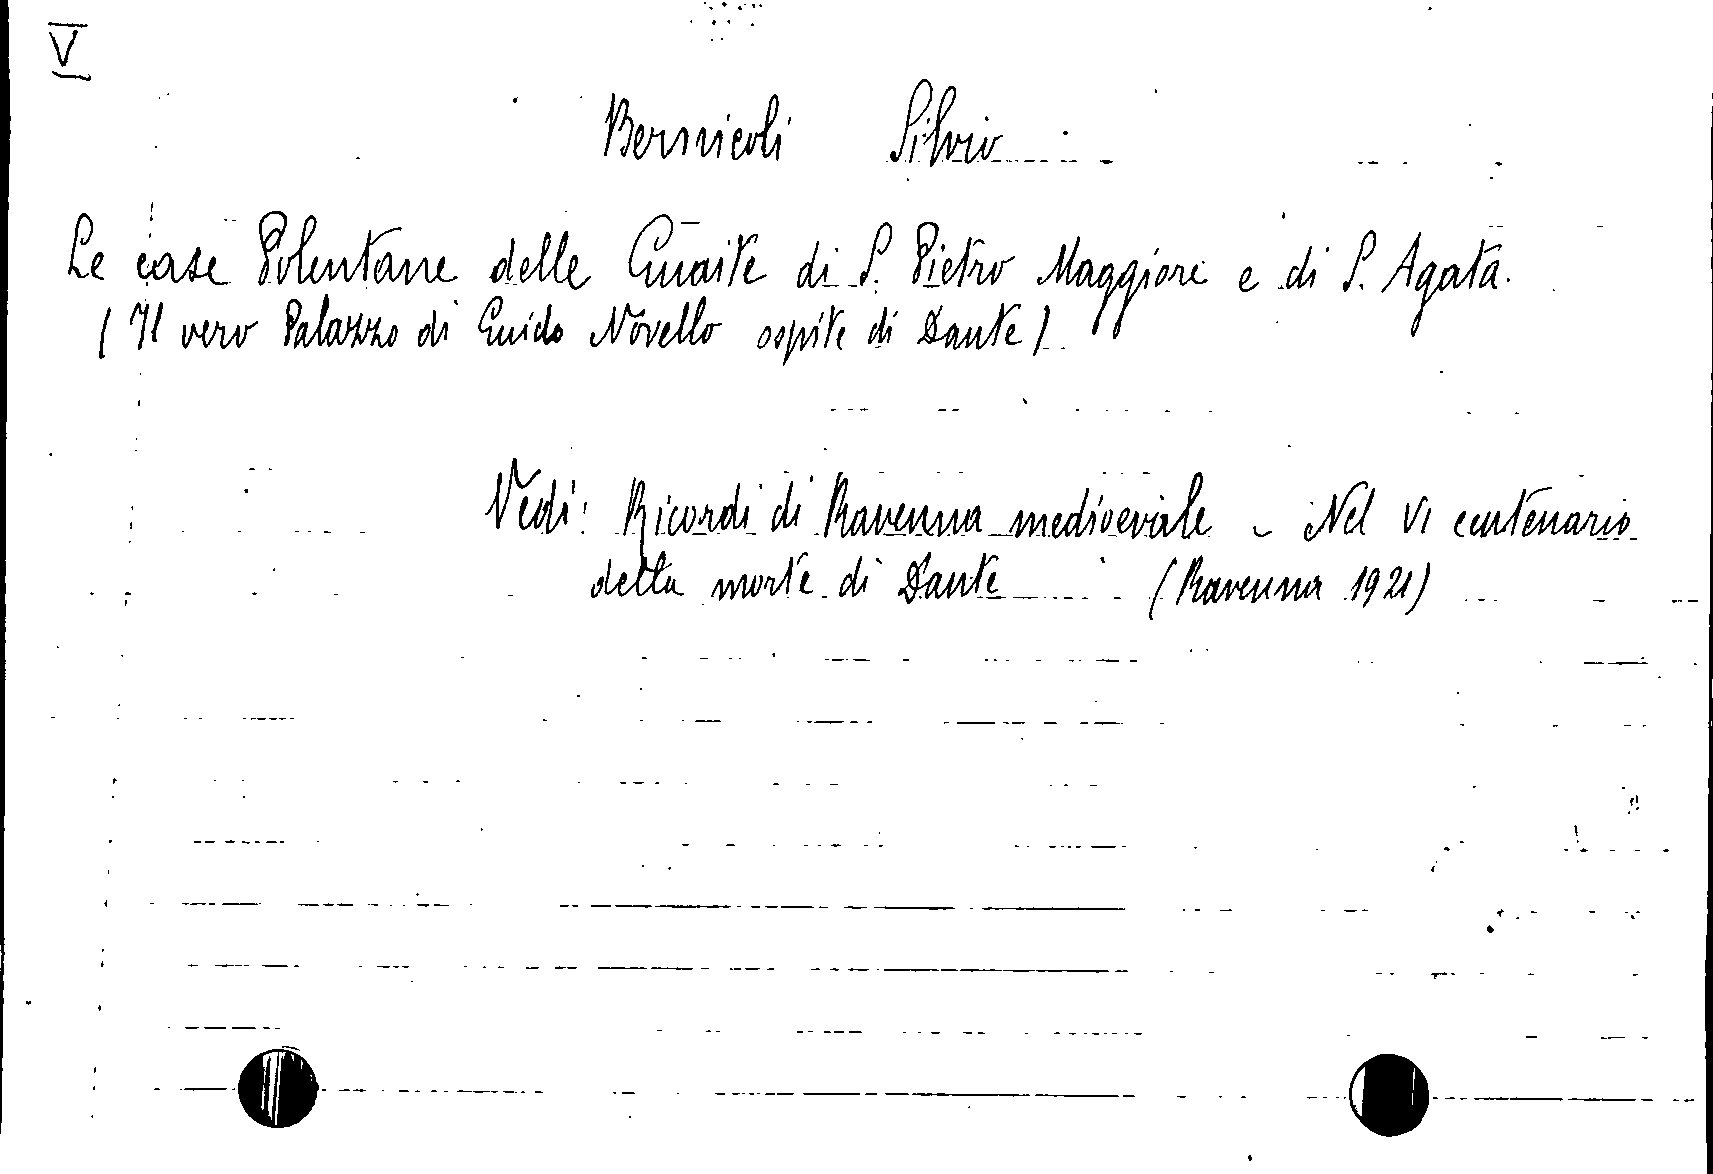 V
Bernicoli Silvio
Le case Polentane delle Guaite di S. Pietro Maggiore e di S. Agata.
(Il vero Palazzo di Guido Novello ospite di Dante)
Vedi: Ricordi di Ravenna medioevale - Nel VI centenario
della morte di Dante (Ravenna 1921)